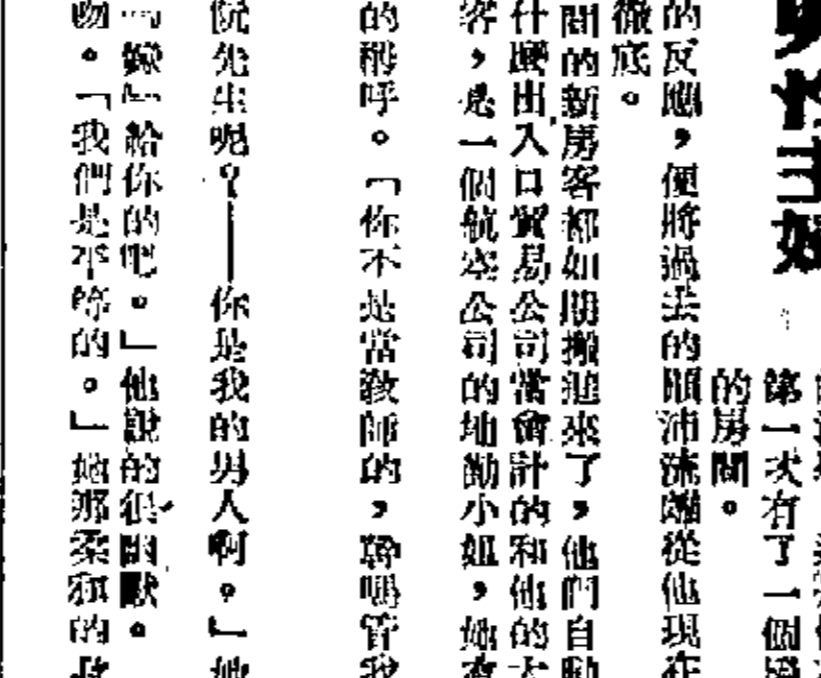 性主
第一次有了一個
的房間。
的反應，便將過去的顛沛流離從他現在
徹底。
間的新房客都如期搬進來了，他們自動
什麼出入口貿易公司當會計的和他的太
客，是一個航空公司的地勤小姐，她有
的稱呼。「你不是當教師的，幹嗎管我
阮先生呢？——你是我的男人啊。」她
「嫁」給你的吧。」他說的很幽默。
吻。「我們是平等的。」她那柔和的